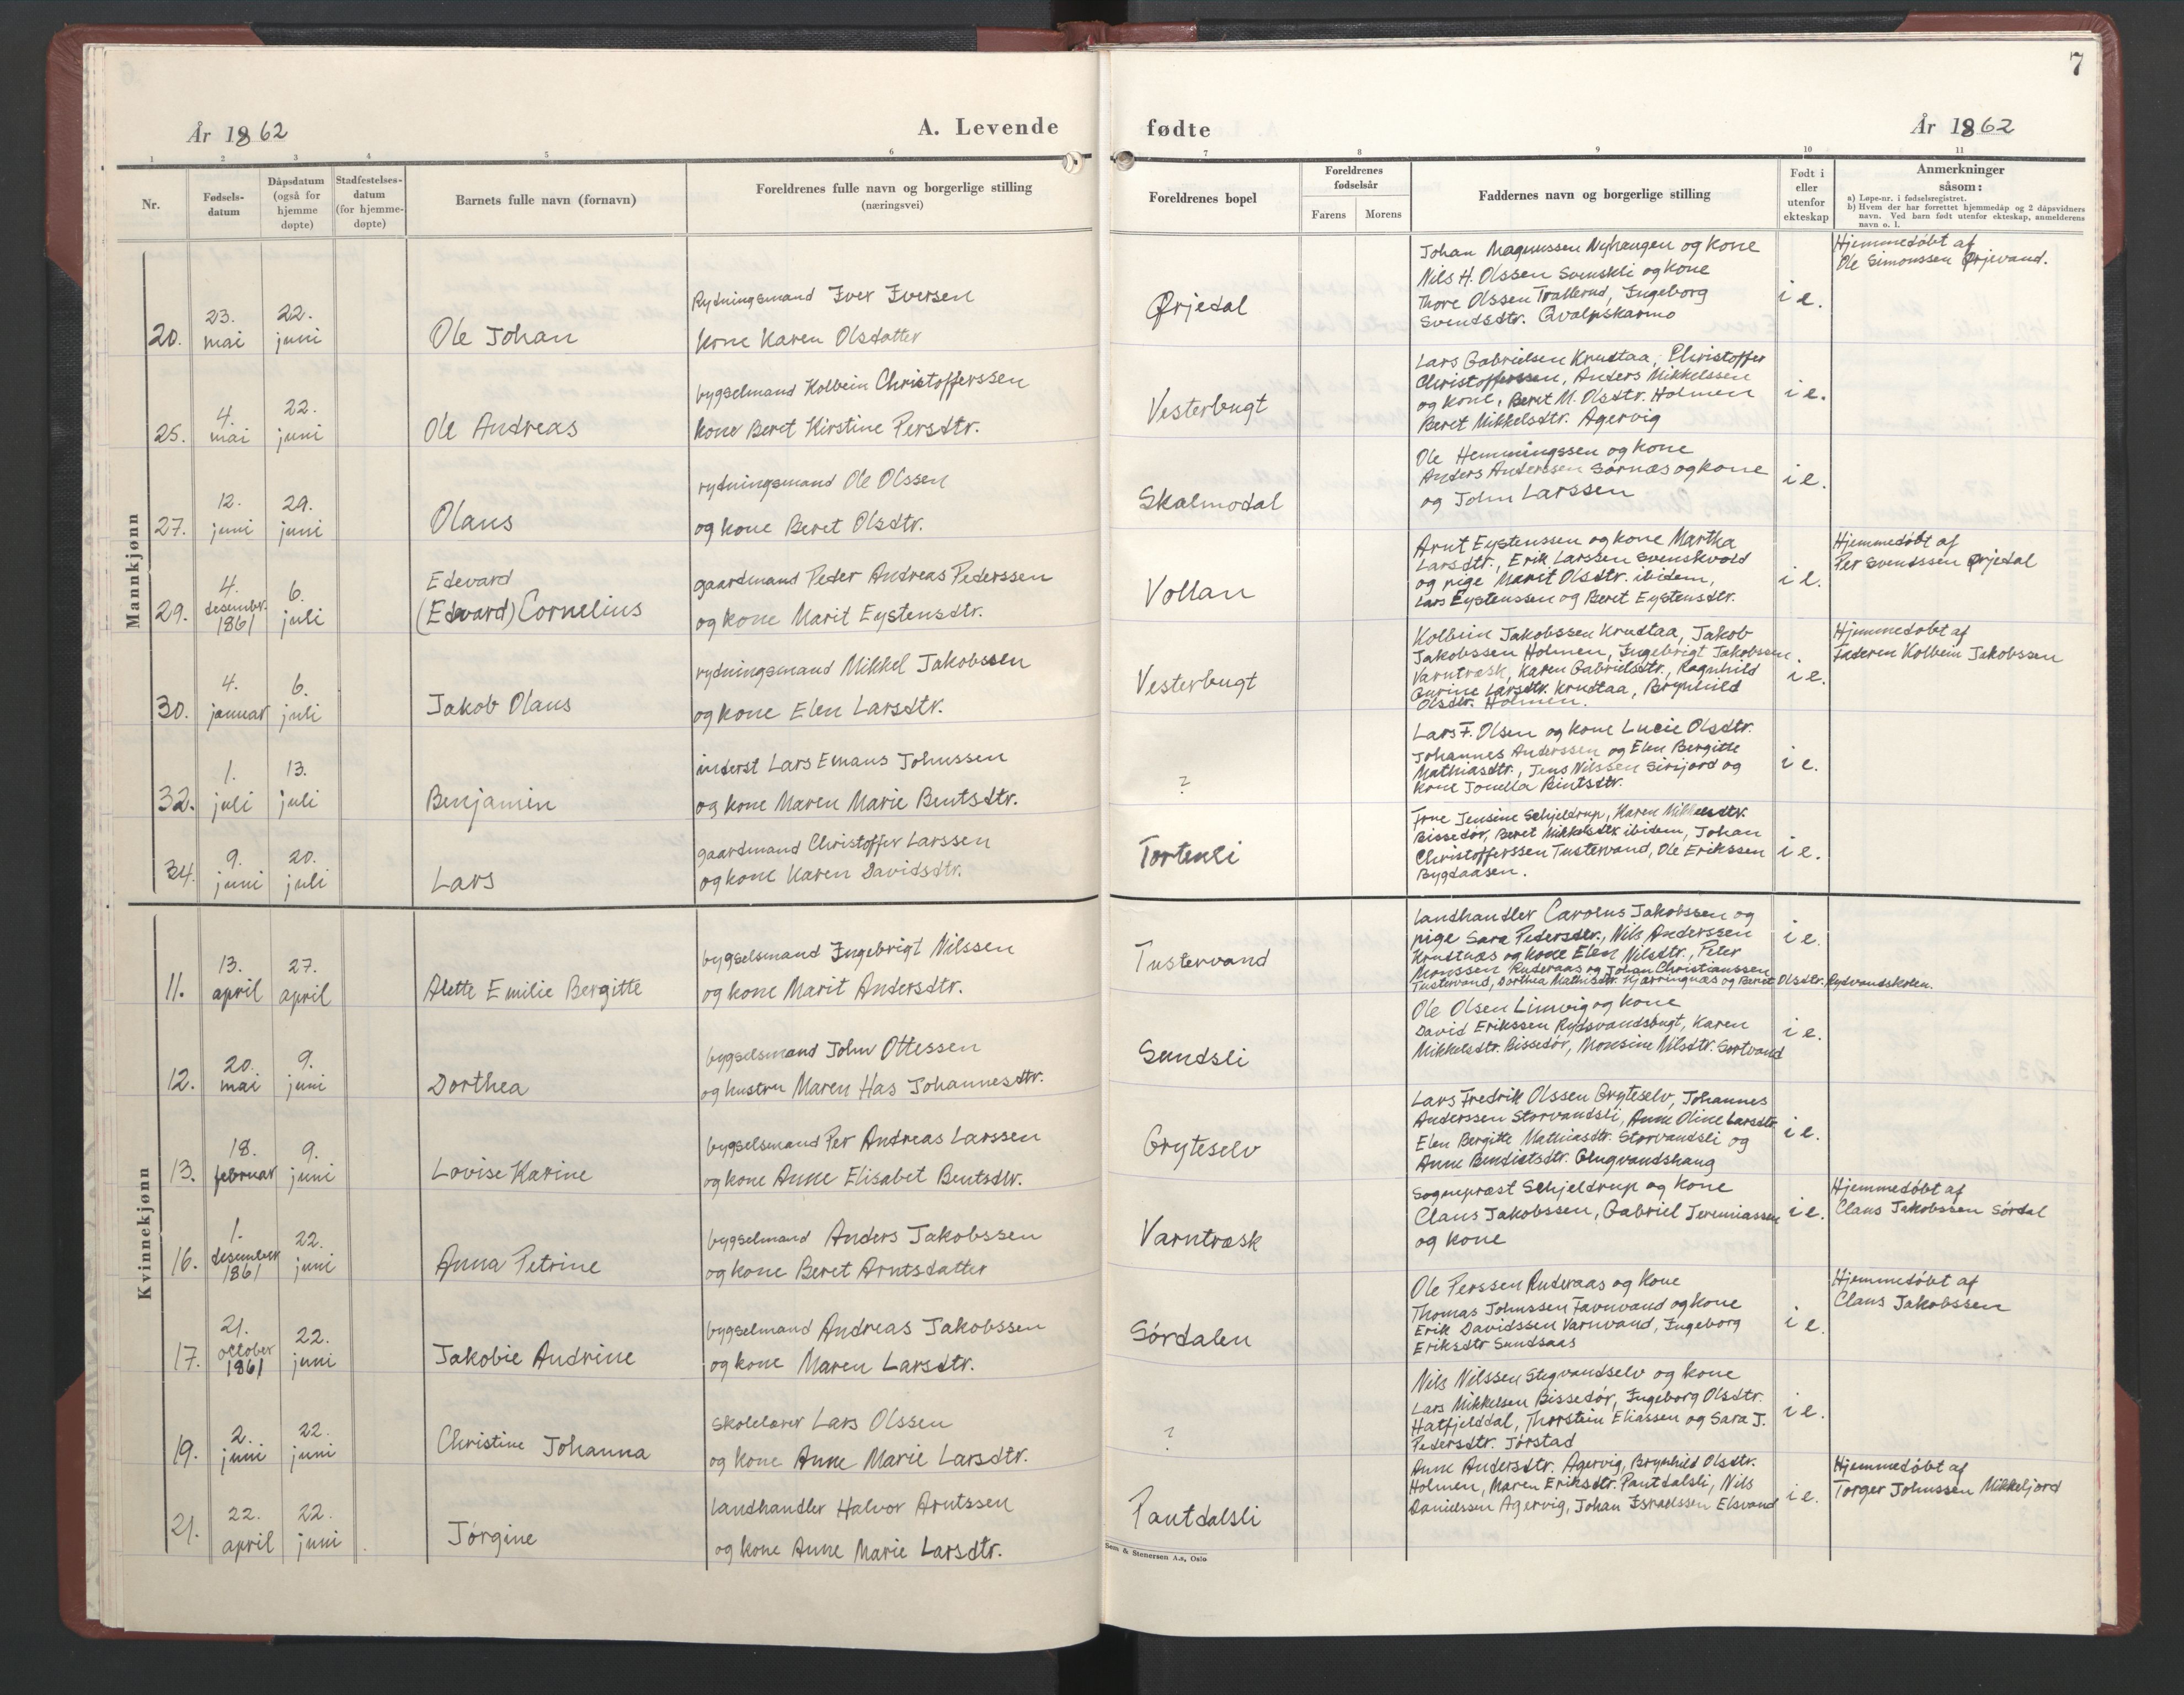 7
År 1862
A. Levende
fødte
År 1862
1 2 3 4 5 6 7 8 9 10 11
Nr.
Fødsels-
datum
Dåpsdatum
(også for
hjemme
døpte)
Stadfestelses-
datum
(for hjemme-
døpte)
Barnets fulle navn (fornavn)
Foreldrenes fulle navn og borgerlige stilling
(næringsvei)
Foreldrenes bopel
Foreldrenes
fødselsår
Farens Morens
Faddernes navn og borgerlige stilling
Født i
eller
utenfor
ekteskap
Anmerkninger
såsom:
a) Løpe-nr. i fødselsregistret.
b) Hvem der har forrettet hjemmedåp og 2 dåpsvidners
navn. Ved barn født utenfor ekteskap, anmelderens
navn o. l.
Mannkjønn
20.
23.
mai
22.
juni
Ole Johan
Rydningsmand Iver Iversen
kone Karen Olsdatter
Ørjedal
Johan Magnussen Nyhaugen og kone
Nils H. Olssen Svenskli og kone
Thore Olssen Trallerud, Ingeborg
Svendsdtr. Qvalpskarmo
i e.
Hjemmedöbt af
Ole Simonssen Ørjevand.
25.
4.
mai
22.
juni
Ole Andreas
bygselmand Kolbein Christofferssen
kone Beret Kirstine Persdtr.
Vesterbugt
Lars Gabrielsen Krudtaa, Christoffer
Christofferssen, Anders Mikkelssen
og kone, Beret M. Olsdtr. Holmen
Beret Mikkelsdtr. Agervig
i e.
27.
12.
juni
29.
juni
Olaus
rydningsmand Ole Olssen
og kone Beret Olsdtr.
Skalmodal
Ole Hemmingssen og kone
Anders Anderssen Sørnæs og kone
og John Larssen
i e.
29.
4.
desember
1861
6.
juli
Edevard
(Edvard) Cornelius
gaardmand Peder Andreas Pederssen
og kone Marit Eystensdtr.
Vollan
Arnt Eystenssen og kone Martha
Larsdtr., Erik Larssen Svenskvold
og pige Marit Olsdtr. ibidem,
Lars Eystenssen og Beret Eystensdtr.
i e.
Hjemmedöbt af
Per Svendssen Ørjedal
30.
4.
januar
6.
juli
Jakob Olaus
rydningsmand Mikkel Jakobssen
og kone Elen Larsdtr.
Vesterbugt
Kolbein Jakobssen Krudtaa, Jakob
Jakobssen Holmen, Ingebrigt Jakobssen
Varntræsk, Karen Gabrielsdtr., Ragnhild
Gurine Larsdtr. Krudtaa, Brynhild
Olsdtr. Holmen.
i e.
Hjemmedöbt af
Faderen Kolbein Jakobssen
32.
1.
juli
13.
juli
Benjamin
inderst Lars Emaus Johnssen
og kone Maren Marie Bentsdtr.
?
Lars F. Olsen og kone Lucie Olsdtr.
Johannes Anderssen og Elen Bergitte
Mathiasdtr., Jens Nilssen Sirijord og
kone Jonella Bentsdtr.
i e.
34.
9.
juni
20.
juli
Lars
gaardmand Christoffer Larssen
og kone Karen Davidsdtr.
Tortenli
Frue Jensine Schjeldrup, Karen Mikkelsdtr.
Bissedør, Beret Mikkelsdtr. ibidem, Johan
Christofferssen Tustervand, Ole Erikssen
Bygdaasen.
i e.
Kvinnekjønn
11.
13.
april
27.
april
Alette Emilie Bergitte
bygselsmand Ingebrigt Nilssen
og kone Marit Andersdtr.
Tustervand
Landhandler Carolus Jakobssen og
pige Sara Pedersdtr., Nils Anderssen
Krudtnæs og kone Elen Nilsdtr., Peter
Monssen Ruderaas og Johan Christianssen
Tustervand, Dorthea Mathisdtr. Kjærringnæs og Beret Olsdtr. Rydvandskolen.
i e.
12.
20.
mai
9.
juni
Dorthea
bygselsmand John Ottessen
og hustru Maren Has Johannesdtr.
Sundsli
Ole Olsen Limvig og kone
David Erikssen Rydsvandsbugt, Karen
Mikkelsdtr. Bissedør, Monsine Nilsdtr. Sortvand
i e.
13.
18.
februar
9.
juni
Lovise Karine
bygselsmand Per Andreas Larssen
og kone Anne Elisabet Bentsdtr.
Gryteselv
Lars Fredrik Olssen Gryteselv, Johannes
Anderssen Storvandsli, Anne Oline Larsdtr
Elen Bergitte Mathiasdtr. Storvandsli og
Anne Bendietsdtr. Glugvandshaug
i e.
16.
1.
desember
1861
22.
juni
Anna Petrine
bygselmand Anders Jakobssen
og kone Beret Arntsdatter
Varntræsk
Sognepræst Schjeldrup og kone
Claus Jakobssen, Gabriel Jeremiassen
og kone
i e.
Hjemmedöbt af
Claus Jakobssen Sördal
17.
21.
october
1861
22.
juni
Jakobie Andrine
bygselmand Andreas Jakobssen
og kone Maren Larsdtr.
Sördalen
Ole Perssen Ruderaas og kone
Thomas Johnssen Favnvand og kone
Erik Davidssen Varnvand, Ingeborg
Eriksdtr Sundsaas
i e.
Hjemmedöbt af
Claus Jakobssen
19.
2.
juni
22.
juni
Christine Johanna
Skolelærer Lars Olssen
og kone Anne Marie Larsdtr.
?
Nils Nilssen Stegvandselv og kone
Lars Mikkelsen Bissedør, Ingeborg Olsdtr.
Hatfjelddal, Thorstein Eliassen og Sara J.
Pedersdtr. Jørstad
i e.
21.
22.
april
22.
juni
Jörgine
Landhandler Halvor Arntssen
og kone Anne Marie Larsdtr.
Pantdalsli
Anne Andersdtr. Agervig, Brynhild Olsdtr.
Holmen, Maren Eriksdtr. Pantdalsli, Nils
Danielssen Agervig, Johan Israelssen Elsvand
i e.
Hjemmedöbt af
Torger Johnssen Mikkeljord
Sem & Stenersen A.s, Oslo